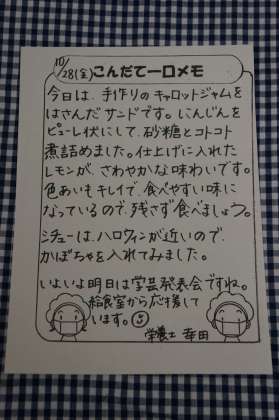 10/28(金)こんだて一口メモ
今日は、手作りのキャロットジャムを
はさんだサンドです。にんじんを
ピューレ状にして、砂糖とコトコト
煮詰めました。仕上げに入れた
レモンが、さわやかな味わいです。
色あいもキレイで、食べやすい味に
なっているので、残さず食べましょう。
シチューは、ハロウィンが近いので、
かぼちゃを入れてみました。
いよいよ明日は学芸発表会ですね。
給食室から応援して
います。
学養士 幸田